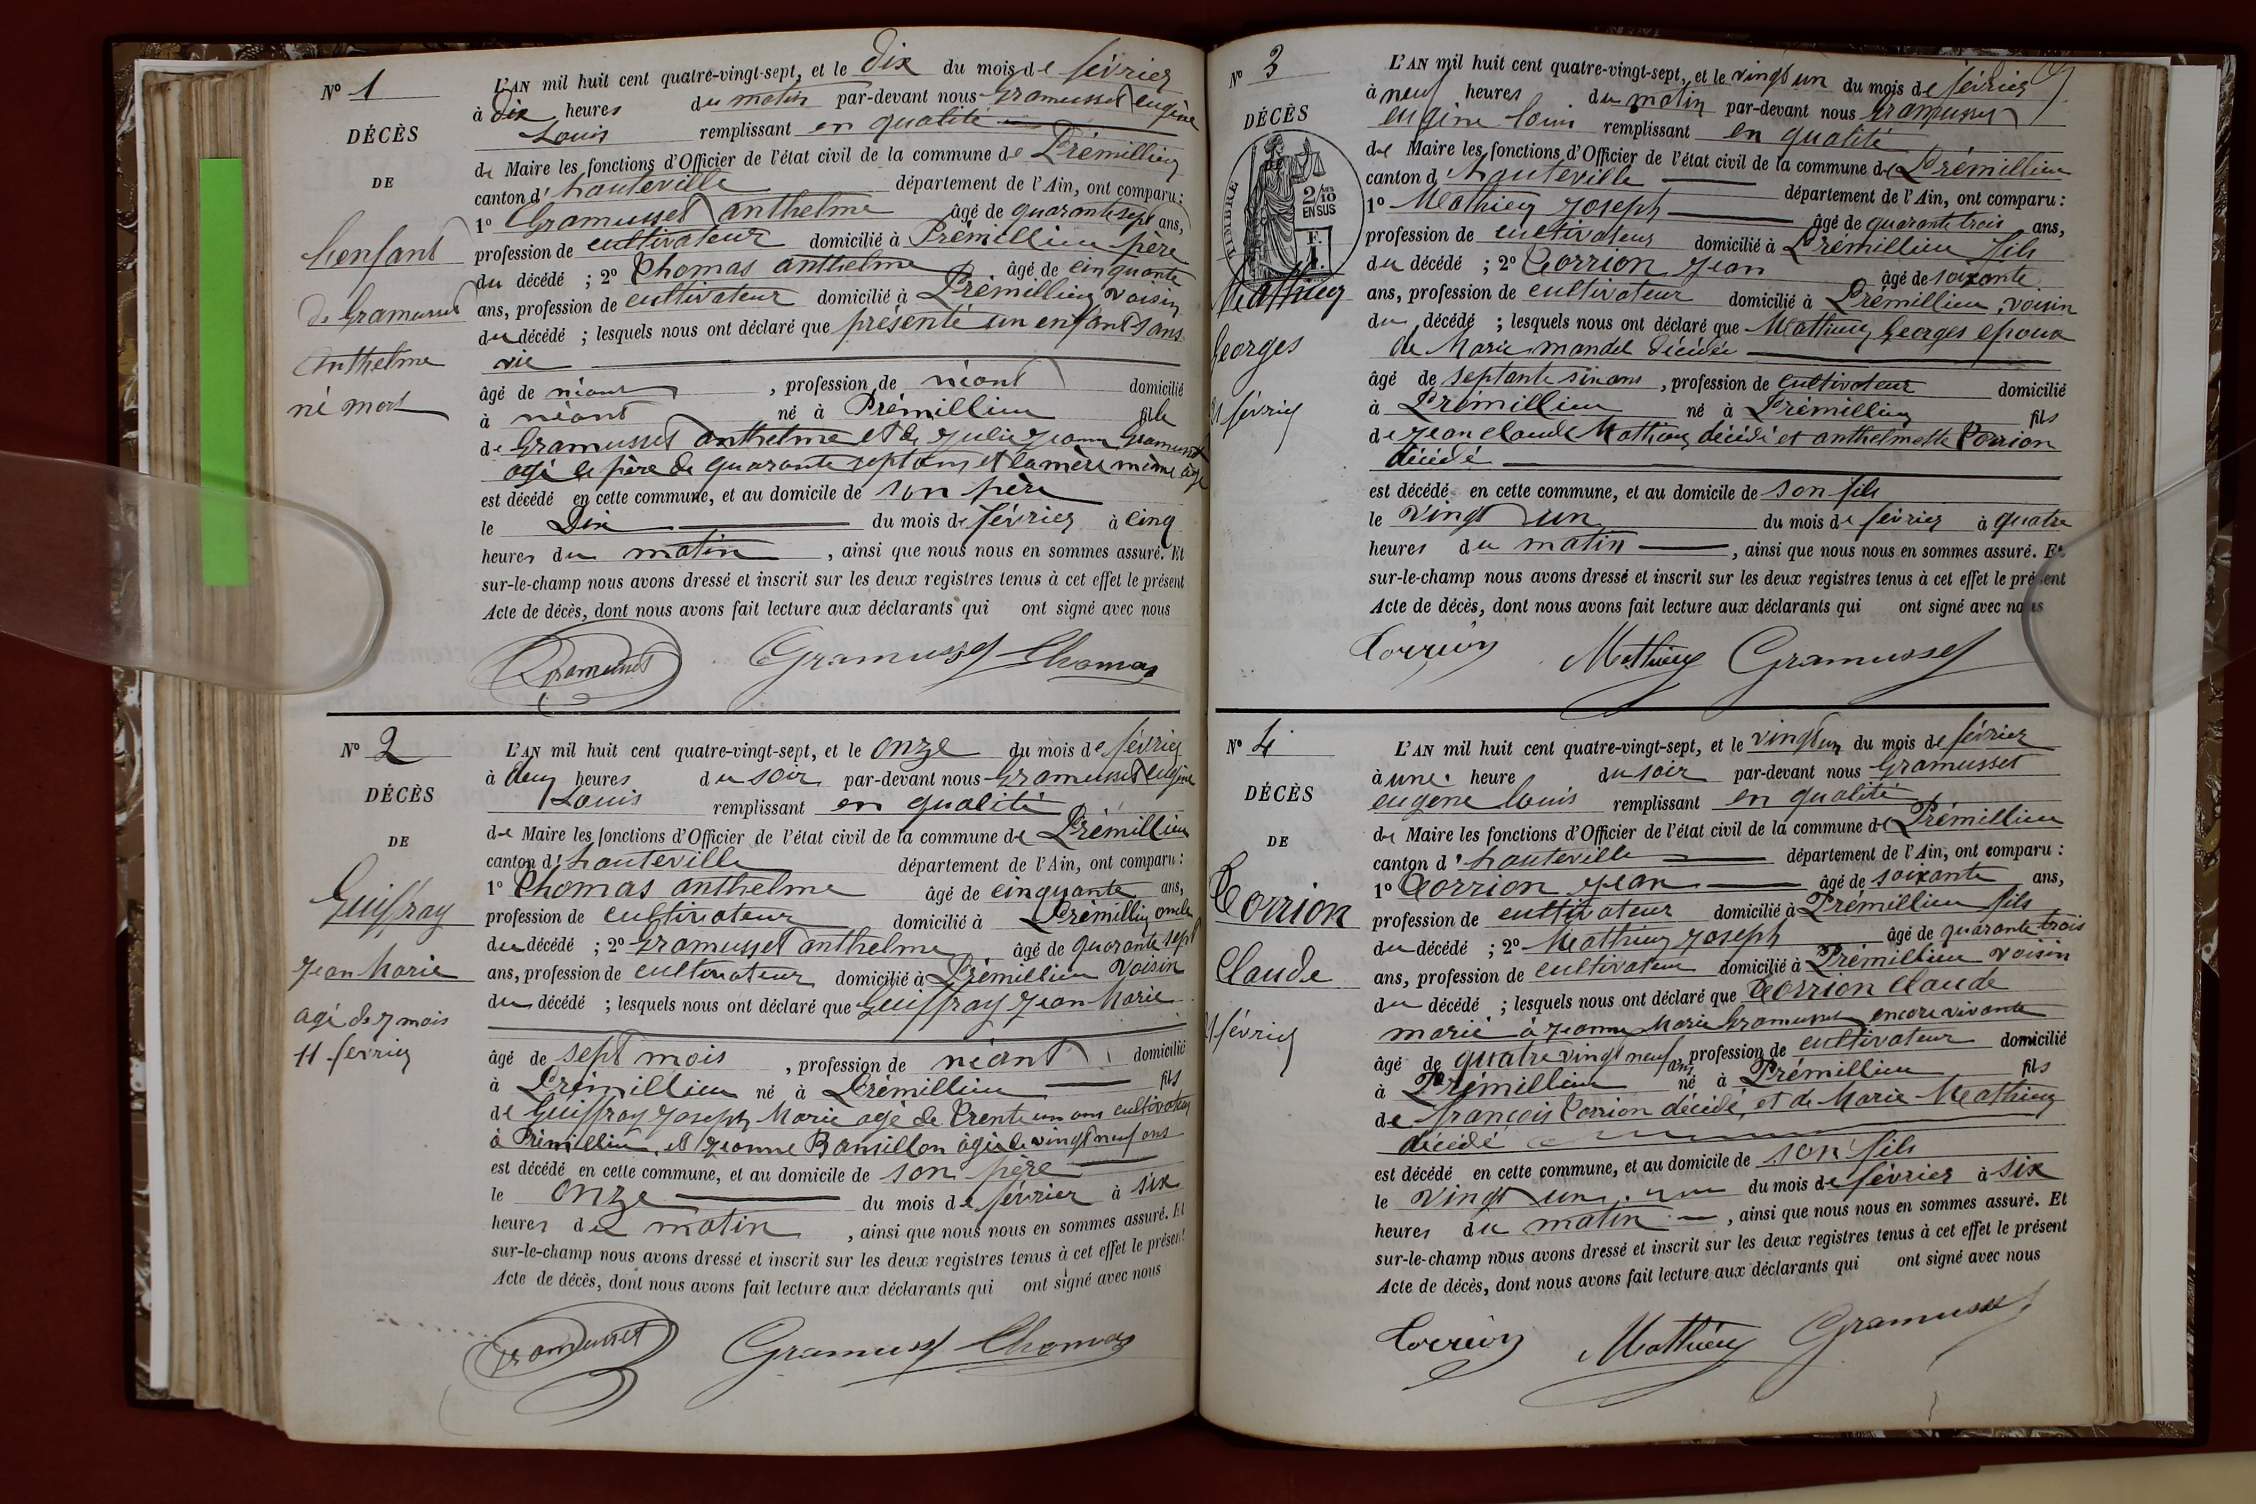 N° 1
DÉCÈS
DE
L'enfant
de Gramusset
Anthelme
né mort
L'AN mil huit cent quatre-vingt-sept, et le Dix du mois de février
à Dix heures du matin par-devant nous Gramusset eugène
Louis remplissant en qualité
de Maire les fonctions d'Officier de l'état civil de la commune de Prémillieu
canton d'hauteville département de l'Ain, ont comparu :
1° Gramusset anthelme âgé de quarante sept ans,
profession de cultivateur domicilié à Prémillieu père
du décédé ; 2° Thomas anthelme âgé de cinquante
ans, profession de cultivateur domicilié à Prémillieu voisin
du décédé ; lesquels nous ont déclaré que présenté un enfant sans
vie
âgé de néant, profession de néant domicilié
à néant né à Prémillieu fils
de Gramusset anthelme et de Julie Jeanne Gramusset
agé le père de quarante sept ans et la mère même âge
est décédé en cette commune, et au domicile de son père
le Dix du mois de février à cinq
heures du matin, ainsi que nous nous en sommes assuré. Et
sur-le-champ nous avons dressé et inscrit sur les deux registres tenus à cet effet le présent
Acte de décès, dont nous avons fait lecture aux déclarants qui ont signé avec nous
Gramusset Gramusset Thomas
N° 2
DÉCÈS
DE
Guiffray
Jean Marie
agé de 7 mois
11 fevrier
L'AN mil huit cent quatre-vingt-sept, et le onze du mois de février
à deux heures du soir par-devant nous Gramusset eugène
Louis remplissant en qualité
de Maire les fonctions d'Officier de l'état civil de la commune de Prémillieu
canton d'hauteville département de l'Ain, ont comparu :
1° Thomas anthelme âgé de cinquante ans,
profession de cultivateur domicilié à Prémillieu oncle
du décédé ; 2° Gramusset anthelme âgé de quarante sept
ans, profession de cultivateur domicilié à Prémillieu voisin
du décédé ; lesquels nous ont déclaré que Guiffray Jean Marie
âgé de sept mois, profession de néant domicilié
à Prémillieu né à Prémillieu fils
de Guiffray Joseph Marie agé de Trente un ans cultivateur
à Prémillieu et Jeanne Bansillon agée de vingt neuf ans
est décédé en cette commune, et au domicile de son père
le onze du mois de février à six
heures de matin, ainsi que nous nous en sommes assuré. Et
sur-le-champ nous avons dressé et inscrit sur les deux registres tenus à cet effet le présent
Acte de décès, dont nous avons fait lecture aux déclarants qui ont signé avec nous
Gramusset Gramusset Thomas
N° 3
DÉCÈS
TIMBRE
2/10
EN SUS
Mathieu
Georges
21 février
L'AN mil huit cent quatre-vingt-sept, et le vingt un du mois de février
à neuf heures du matin par-devant nous Gramusset
eugène louis remplissant en qualité
de Maire les fonctions d'Officier de l'état civil de la commune de Prémillieu
canton d'hauteville département de l'Ain, ont comparu :
1° Mathieu Joseph âgé de quarante trois ans,
profession de cultivateur domicilié à Prémillieu fils
du décédé ; 2° Torrion Jean âgé de soixante
ans, profession de cultivateur domicilié à Prémillieu, voisin
du décédé ; lesquels nous ont déclaré que Mathieu Georges epoux
de Marie mandel décédée
âgé de septante six ans, profession de cultivateur domicilié
à Prémillieu né à Prémillieu fils
de Jean claude Mathieu décédé et anthelmette Torrion
décédé
est décédé en cette commune, et au domicile de son fils
le vingt un du mois de février à quatre
heures du matin, ainsi que nous nous en sommes assuré. Et
sur-le-champ nous avons dressé et inscrit sur les deux registres tenus à cet effet le présent
Acte de décès, dont nous avons fait lecture aux déclarants qui ont signé avec nous
Torrion Mathieu Gramusset
N° 4
DÉCÈS
DE
Torrion
Claude
21 février
L'AN mil huit cent quatre-vingt-sept, et le vingt un du mois de février
à une heure du soir par-devant nous Gramusset
eugène louis remplissant en qualité
de Maire les fonctions d'Officier de l'état civil de la commune de Prémillieu
canton d'hauteville département de l'Ain, ont comparu :
1° Torrion Jean âgé de soixante ans,
profession de cultivateur domicilié à Prémillieu fils
du décédé ; 2° Mathieu Joseph âgé de quarante trois
ans, profession de cultivateur domicilié à Prémillieu voisin
du décédé ; lesquels nous ont déclaré que Torrion Claude
marié à Jeanne Marie Gramusset encore vivante
âgé de quatre vingt neuf ans, profession de cultivateur domicilié
à Prémillieu né à Prémillieu fils
de françois Torrion décédé, et de Marie Mathieu
décédé
est décédé en cette commune, et au domicile de son fils
le vingt un du mois de février à six
heures du matin, ainsi que nous nous en sommes assuré. Et
sur-le-champ nous avons dressé et inscrit sur les deux registres tenus à cet effet le présent
Acte de décès, dont nous avons fait lecture aux déclarants qui ont signé avec nous
Torrion Mathieu Gramusset